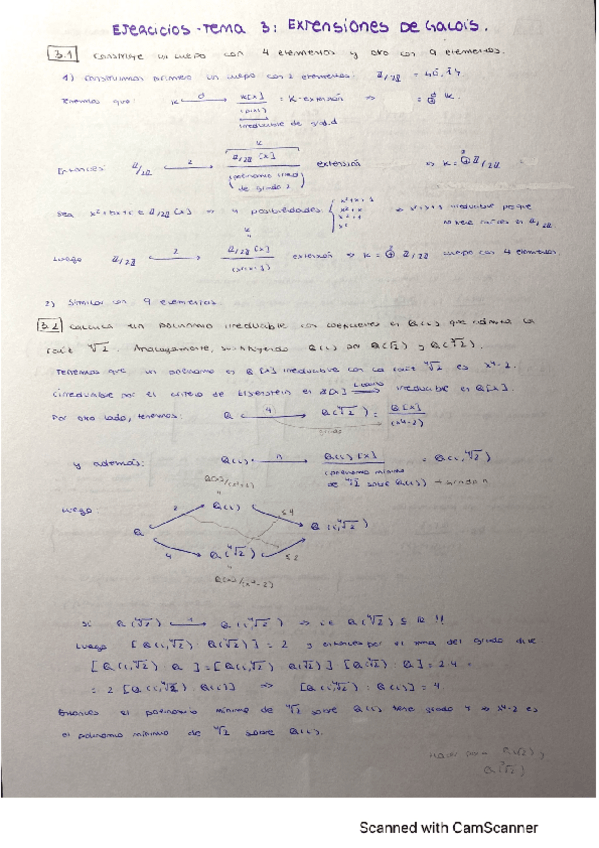 EJERCICIOS - TEMA 3: EXTENSIONES DE GALOIS.
3.1 Construye un cuerpo con 4 elementos y otro con 9 elementos.
1) Construimos primero un cuerpo con 2 elementos: ℤ/2ℤ =
Tenemos que: K → K[x] = K-extensión ⇒
irreducible de grad. d
Entonces: ℤ/2ℤ →² ℤ/2ℤ [x] extensión ⇒ K = ℤ/2ℤ
(polinomio irred de grado 2)
Sea x²+bx+c ∈ ℤ/2ℤ [x] ⇒ 4 posibilidades ⇒ irreducible porque
no tiene raíces en ℤ/2ℤ.
Luego ℤ/2ℤ →² ℤ/2ℤ [x] extensión ⇒ K = ℤ/2ℤ cuerpo con 4 elementos
2) Similar con 9 elementos.
3.2 Calcula un polinomio irreducible con coeficientes en ℚ(i) que admita la
raíz ⁴√2. Análogamente, sustituyendo ℚ(i) por ℚ(√2) y
Tenemos que un polinomio en ℚ[x] irreducible con la raíz ⁴√2 es x⁴-2.
(irreducible por el criterio de Eisenstein en ℤ[x] ⇒ irreducible en ℚ[x].
Por otro lado, tenemos: ℚ →⁴ ℚ(⁴√2) = ℚ[x]
(x⁴-2)
grado
y además: ℚ(i) →ⁿ ℚ(i)[x] = ℚ(i, ⁴√2)
(polinomio mínimo
de ⁴√2 sobre ℚ(i)) → grado n
Luego:
2 ℚ(i) ≤4
ℚ ℚ(i, ⁴√2)
4 ℚ(⁴√2) ≤2
ℚ[x]/(x⁴-2)
Si ℚ(⁴√2) →¹ ℚ(i, ⁴√2) ⇒ i ∈ ℚ(⁴√2) ⊆ ℝ !!
Luego [ℚ(i, ⁴√2) : ℚ(⁴√2)] = 2 y entonces por el tma del grado
[ℚ(i, ⁴√2) : ℚ] = [ℚ(i, ⁴√2) : ℚ(⁴√2)] · [ℚ(⁴√2) : ℚ] = 2·4 =
= 2 · [ℚ(i, ⁴√2) : ℚ(i)] ⇒ [ℚ(i, ⁴√2) : ℚ(i)] = 4.
Entonces el polinomio mínimo de ⁴√2 sobre ℚ(i) tiene grado 4 ⇒ x⁴-2 es
el polinomio mínimo de ⁴√2 sobre ℚ(i).
Hacer para ℚ(√2) y
Scanned with CamScanner